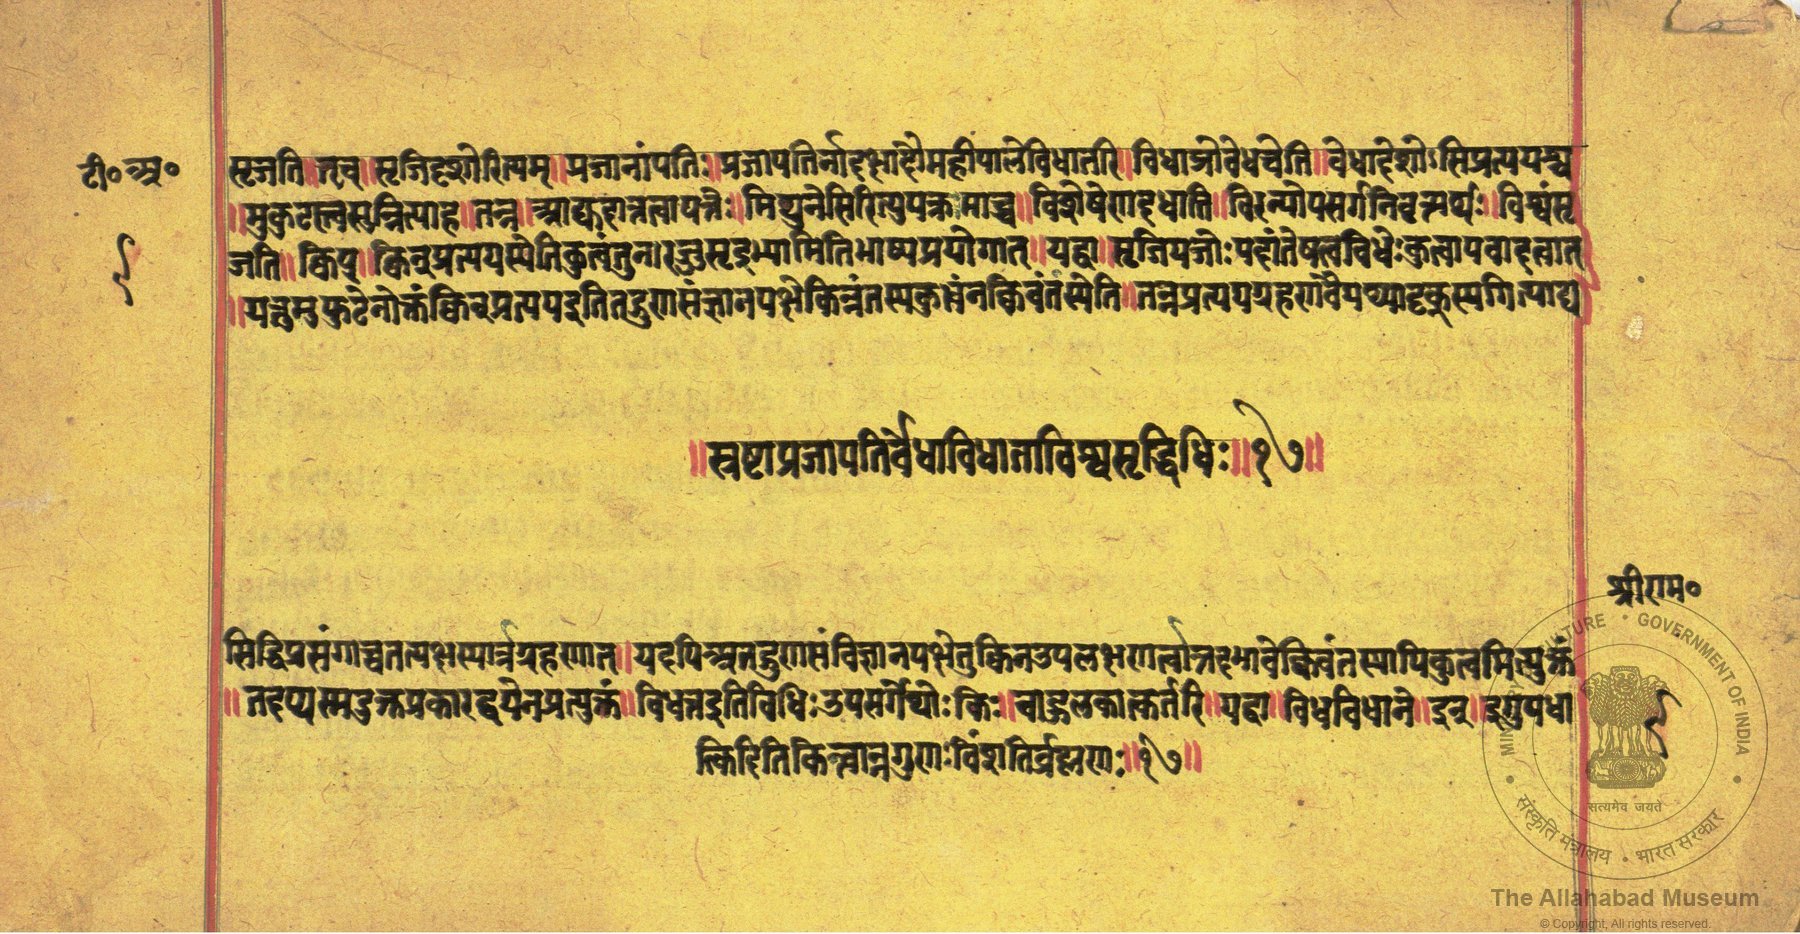 टी०अ०
सृजति॥तृच्॥सृजिदृशोरित्यम्॥प्रजानांपतिः॥प्रजापतिर्नादक्षादौमहीपालेविधातरि॥विधाञोवेधचेति॥वेधादेशोऽसिप्रत्ययश्च
॥मुकुटस्त्वसुन्नित्याह॥तन्न॥आद्युदात्तत्वापत्तेः॥मिथुनेसिरित्युपक्रमाच्च॥विशेषेणदधाति॥विरन्योपसर्गनिवृत्त्यर्थः॥विश्वंसृ
जति॥क्विप्॥क्विन्प्रत्ययस्येतिकुत्वंतुनारज्जुसृड्भ्यामितिभाष्यप्रयोगात्॥यद्वा॥सृजियजोःपदांतेषत्वविधेःकुत्वापवादत्वात्
॥यत्तुमुकुटेनोक्तंक्विन्प्रत्ययइतितद्गुणसंज्ञानपक्षेक्विन्नंतस्यकुत्वंनक्विबंतस्येति॥तन्नप्रत्ययग्रहणवैयर्थ्यादृक्स्पगित्याद्य
॥स्रष्टाप्रजापतिर्वेधाविधाताविश्वसृड्विधिः॥१७॥
श्रीराम०
सिद्धिप्रसंगाच्चतत्पक्षस्यात्रग्रहणात्॥यदपिअतद्गुणसंविज्ञानपक्षेतुक्विनउपलक्षणत्वात्तदभावेक्विबंतस्यापिकुत्वमित्युक्तं
॥तदप्यस्मदुक्तप्रकारद्वयेनप्रत्युक्तं॥विधत्तइतिविधिःउपसर्गेघोःकिः॥बाहुलकात्कर्तरि॥यद्वा॥विधविधाने॥इन्॥इगुपधा
त्किदितिकित्त्वान्नगुणःविंशतिर्ब्रह्मणः॥१७॥
सत्यमेव जयते
MINISTRY OF CULTURE • GOVERNMENT OF INDIA
संस्कृति मंत्रालय • भारत सरकार
The Allahabad Museum
© Copyright, All rights reserved.